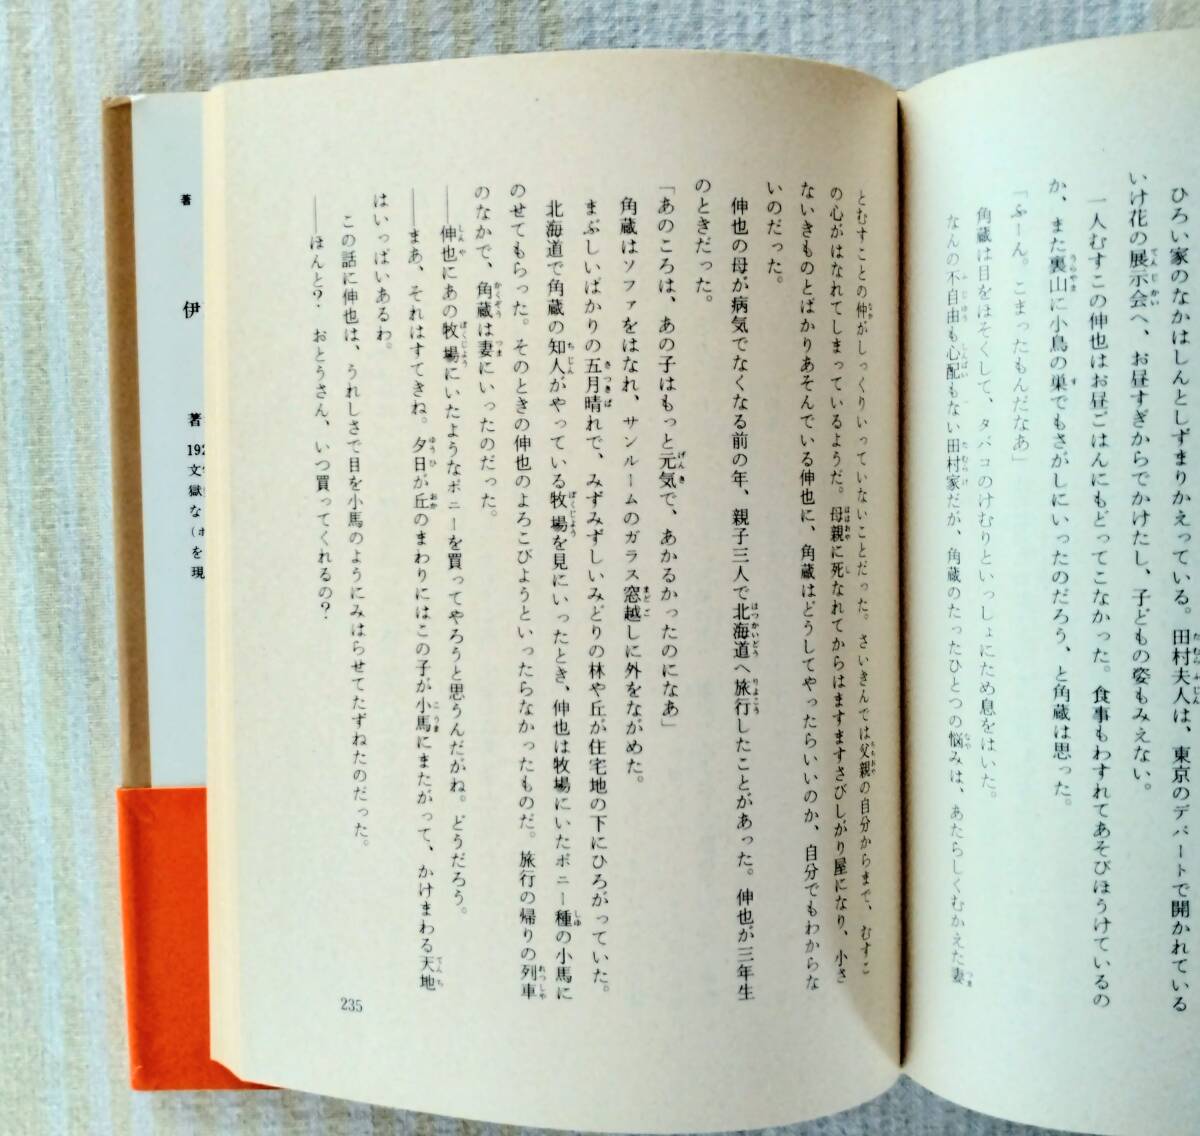 ひろい家のなかはしんとしずまりかえっている。田村夫人は、東京のデパートで開かれている
いけ花の展示会へ、お昼すぎからでかけたし、子どもの姿もみえない。
一人むすこの伸也はお昼ごはんにもどってこなかった。食事もわすれてあそびほうけているの
か、また裏山に小鳥の巣でもさがしにいったのだろう、と角蔵は思った。
「ふーん。こまったもんだなあ」
角蔵は目をほそくして、タバコのけむりといっしょにため息をはいた。
なんの不自由も心配もない田村家だが、角蔵のたったひとつの悩みは、あたらしくむかえた妻
とむすことの仲がしっくりいっていないことだった。さいきんでは父親の自分からまで、むすこ
の心がはなれてしまっているようだ。母親に死なれてからはますますさびしがり屋になり、小さ
ないきものとばかりあそんでいる伸也に、角蔵はどうしてやったらいいのか、自分でもわからな
いのだった。
伸也の母が病気でなくなる前の年、親子三人で北海道へ旅行したことがあった。伸也が三年生
のときだった。
「あのころは、あの子はもっと元気で、あかるかったのになあ」
角蔵はソファをはなれ、サンルームのガラス窓越しに外をながめた。
まぶしいばかりの五月晴れで、みずみずしいみどりの林や丘が住宅地の下にひろがっていた。
北海道で角蔵の知人がやっている牧場を見にいったとき、伸也は牧場にいたポニー種の小馬に
のせてもらった。そのときの伸也のよろこびようといったらなかったものだ。旅行の帰りの列車
のなかで、角蔵は妻にいったのだった。
――伸也にあの牧場にいたようなポニーを買ってやろうと思うんだがね。どうだろう。
――まあ、それはすてきね。夕日が丘のまわりにはこの子が小馬にまたがって、かけまわる天地
はいっぱいあるわ。
この話に伸也は、うれしさで目を小馬のようにみはらせてたずねたのだった。
――ほんと？　おとうさん、いつ買ってくれるの？
235
著
伊
著
192
文
獄
な
を
現